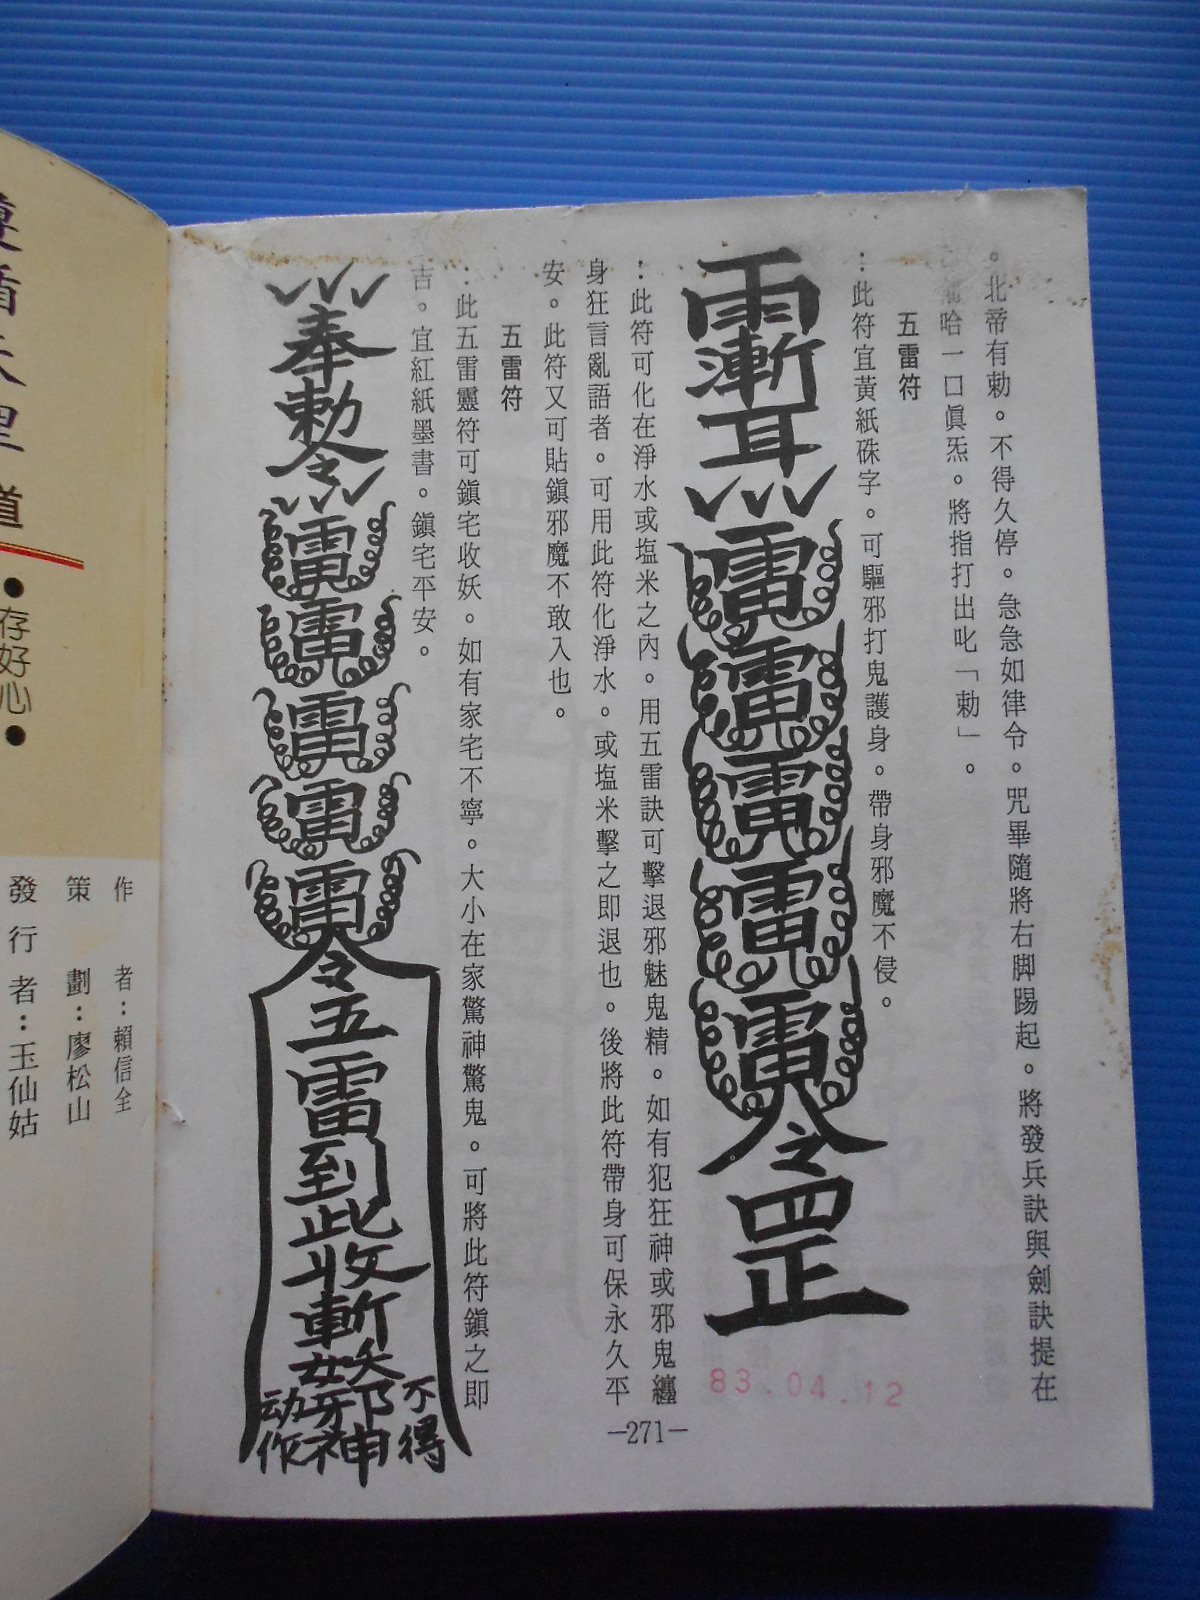 。北帝有勅。不得久停。急急如律令。咒畢隨將右脚踢起。將發兵訣與劍訣提在
哈一口眞炁。將指打出叱「勅」。
五雷符
:此符宜黃紙硃字。可驅邪打鬼護身。帶身邪魔不侵。
雨漸耳
雷雷雷雷雷令罡
:此符可化在淨水或塩米之內。用五雷訣可擊退邪魅鬼精。如有犯狂神或邪鬼纏
身狂言亂語者。可用此符化淨水。或塩米擊之即退也。後將此符帶身可保永久平
安。此符又可貼鎮邪魔不敢入也。
五雷符
:此五雷靈符可鎮宅收妖。如有家宅不寧。大小在家驚神驚鬼。可將此符鎮之即
吉。宜紅紙墨書。鎮宅平安。
奉勅令
雷雷雷雷雷令五雷到此收斬妖邪神
不得
动作
83.04.12
—271—
道
●存好心●
作 者:賴信全
策 劃:廖松山
發行者:玉仙姑